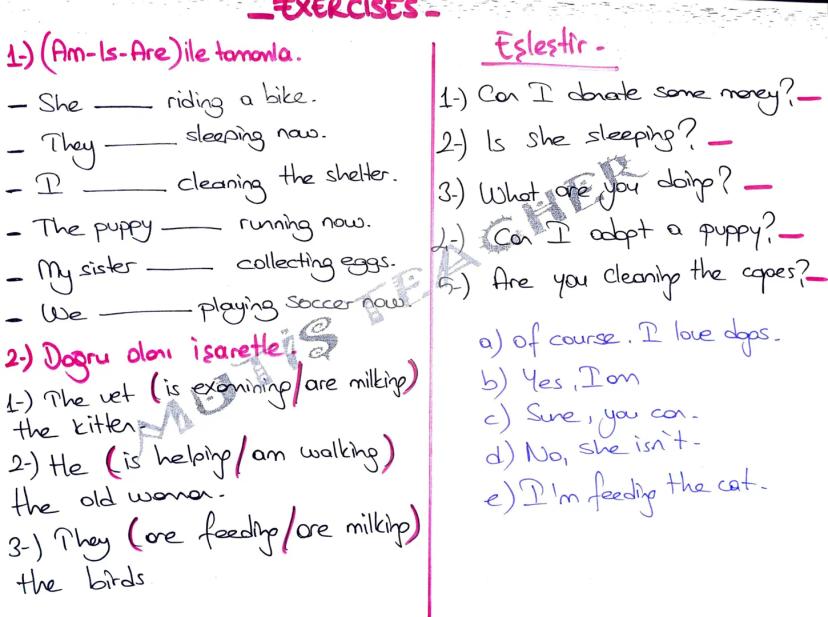 _EXERCISES_
1-) (Am-Is-Are) ile tamamla.
- She ____ riding a bike.
- They ____ sleeping now.
- I ____ cleaning the shelter.
- The puppy ____ running now.
- My sister ____ collecting eggs.
- We ____ playing soccer now.
2-) Doğru olanı işaretle.
1-) The vet (is examining/are milking)
the kitten.
2-) He (is helping/am walking)
the old woman.
3-) They (are feeding/are milking)
the birds
Eşleştir-
1-) Can I donate some money? _
2-) Is she sleeping? _
3-) What are you doing? _
4-) Can I adopt a puppy? _
5-) Are you cleaning the cages? _
a) Of course. I love dogs.
b) Yes, I am
c) Sure, you can.
d) No, she isn't.
e) I'm feeding the cat.
MUTİŞ TEACHER